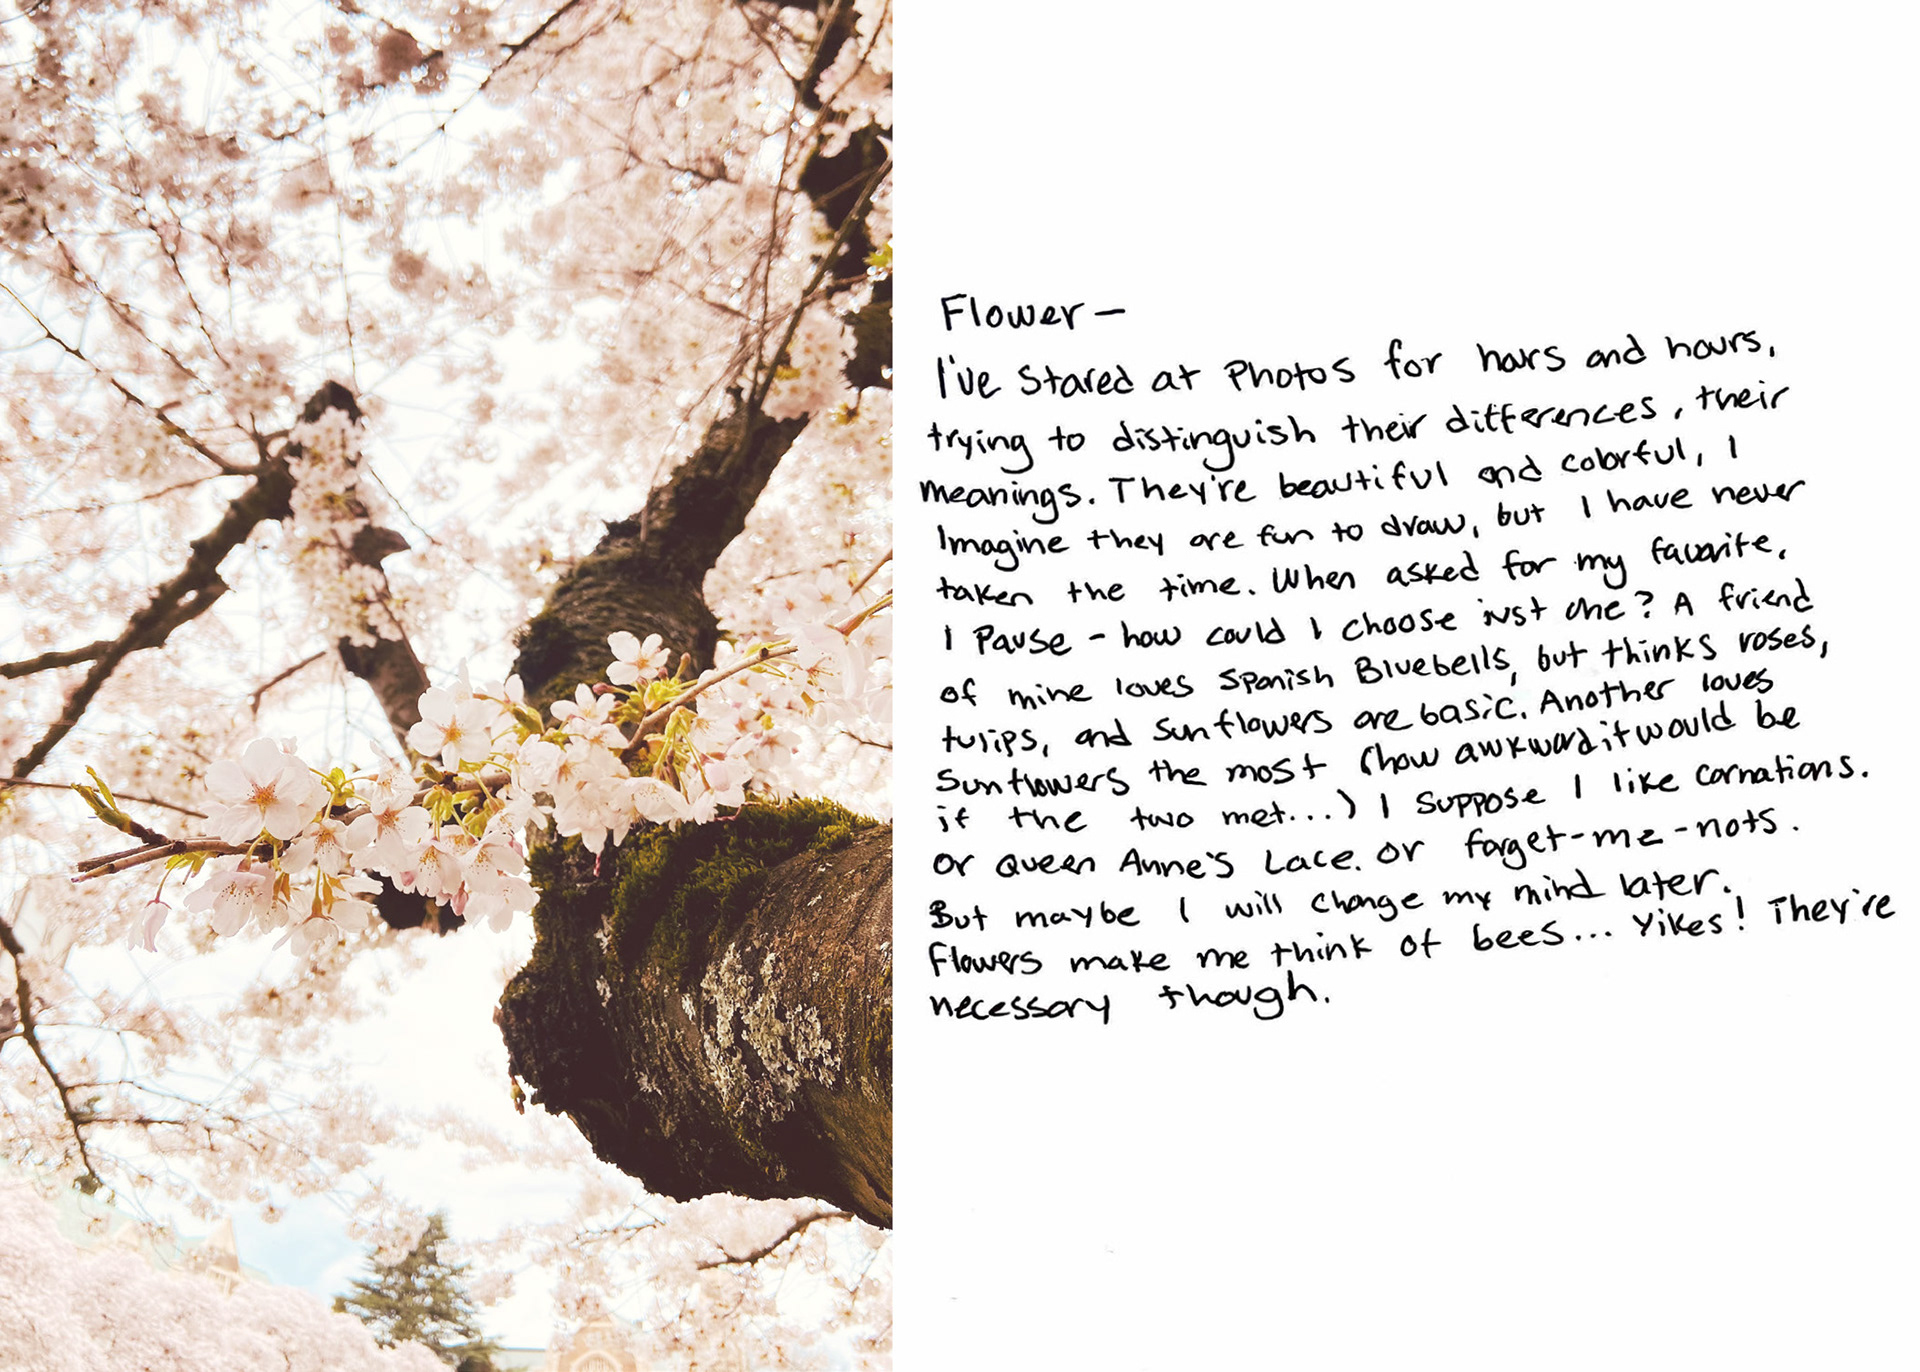 Flower —
I've stared at photos for hours and hours,
trying to distinguish their differences, their
meanings. They're beautiful and colorful, I
imagine they are fun to draw, but I have never
taken the time. When asked for my favorite,
I pause - how could I choose just one? A friend
of mine loves Spanish Bluebells, but thinks roses,
tulips, and sunflowers are basic. Another loves
sunflowers the most (how awkward it would be
if the two met...) I suppose I like carnations.
or Queen Anne's Lace. or forget-me-nots.
But maybe I will change my mind later.
Flowers make me think of bees... Yikes! They're
necessary though.